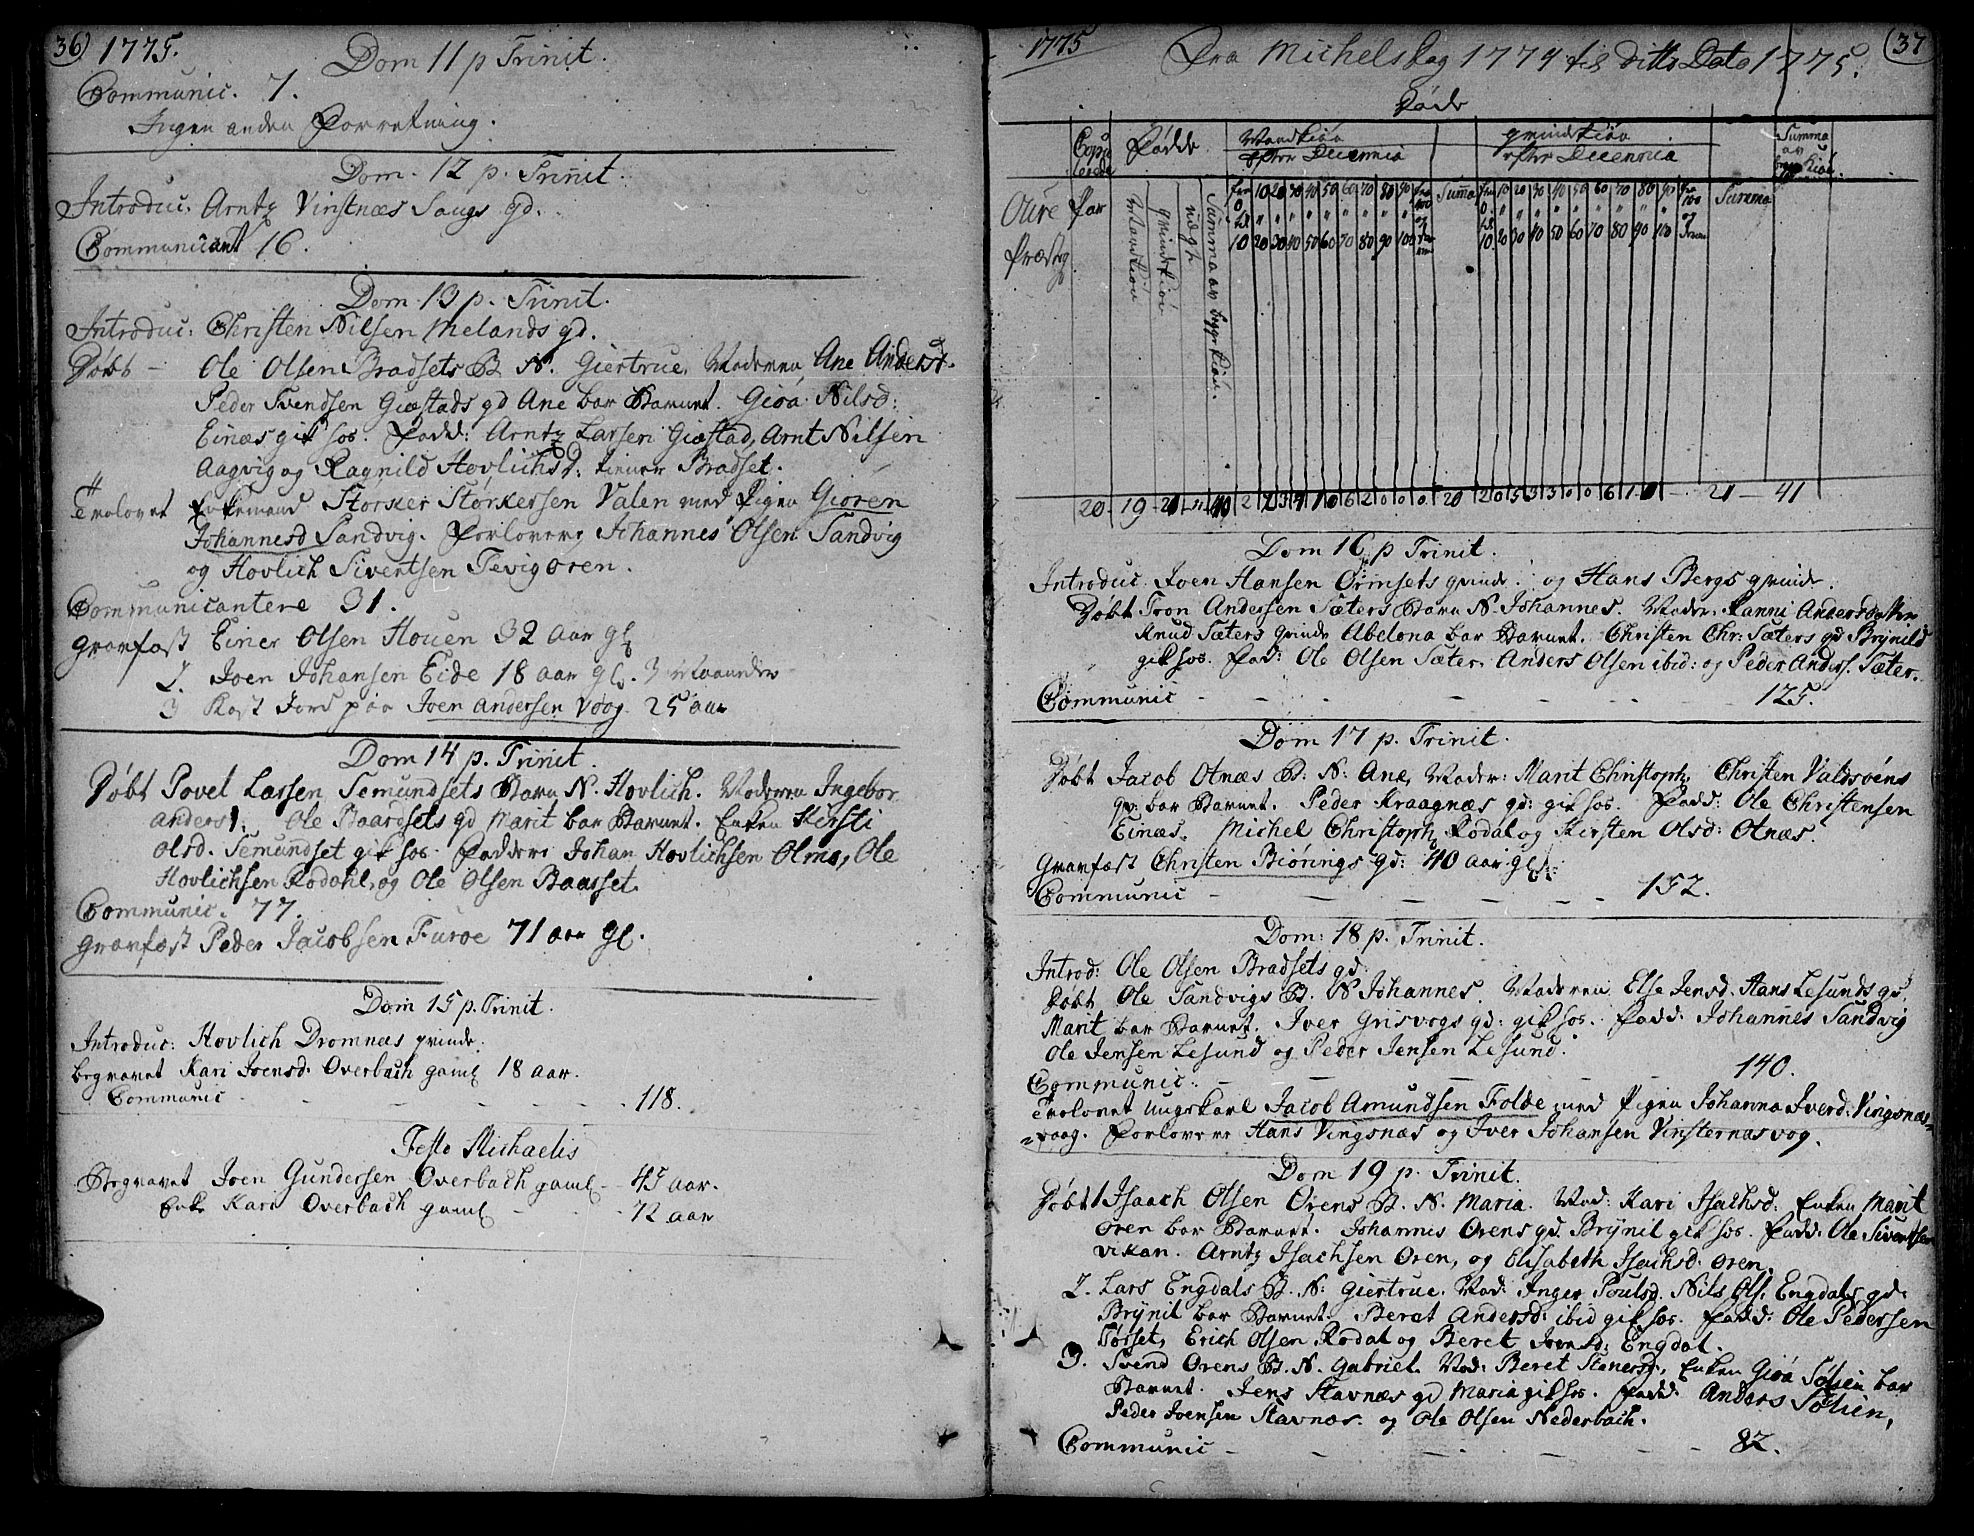 36) 1775.
Dom 11 p Trinit.
Communic. 7.
Ingen anden Forretning.
Dom. 12 p. Trinit.
Introduc. Arntz Vinstnæs Saugs gd.
Communicant 16.
Dom. 13 p. Trinit.
Introduc: Christen Nilsen Melands gd.
Døbt – Ole Olsen Bradsets B. N. Giertrue. Moderen, Ane Andersd.
Peder Svendsen Giæstads gd Ane bar Barnet. Gioa Nilsd:
Einæs gik hos. Fadd: Arntz Larsen Giæstad, Arnt Nilsen
Aagvig og Ragnild Hovlichsd: tiener Bradset.
Trolovet Enkemand Størker Størkersen Valen med Pigen Gioren
Johannesd Sandvig. Forlovere Johannes Olsen Sandvig
og Hovlich Sivertsen Tevigoren.
Communicantere 31.
Gravfæst Einer Olsen Houen 32 aar gl
2. Joen Johansen Eide 18 aar gl. 3 Maaneder
3 Kast Jord paa Joen Andersen Vøog. 25 aar
Dom 14 p. Trinit.
Døbt Povel Larsen Semundsets Barn N. Hovlich. Moderen Ingebor
anders1. Ole Baardsets gd Marit bar Barnet. Enken Kersti
Olsd. Semundset gik hos. Faddere Johan Hovlichsen Olmo, Ole
Hovlichsen Rodahl, og Ole Olsen Baasset.
Communic. 77.
Gravfæst Peder Jacobsen Furoe 71 aar gl.
Dom 15 p. Trinit.
Introduc: Hovlich Dromnæs qvinde.
begravet Kari Joensd. Overbach gaml 18 aar.
Communic - - - - - - 118.
Festo Michaelis
Begravet Joen Gundersen Overbach gaml – 45 aar.
Enke Kari Overbach gaml - - 72 aar
1775
Fra Michelsdag 1774 til ditto Dato 1775.
37
Døde
Copulerede Fødde Mandkiøn qvindekiøn Summa av begge Kiøn.
efter Decennia efter Decennia
Øure Par Mandkiøn qvindekiøn uægte Summa av begge Kiøn. fra 0 til 10 10 20 30 40 50 60 70 80 90 fra 100 Summa fra 0 10 20 30 40 50 60 70 80 90 fra 100 Summa
Præsteg 10 20 30 40 50 60 70 80 90 100 10 20 30 40 50 60 70 80 90 100
20 19 21 40 20 21 41
Dom 16 p Trinit.
Introduc Joen Hansen Ørnsets qvinde. og Hans Bergs qvinde.
Døbt Tron Andersen Sæters Barn N. Johannes. Moder. Ranni Andersdotter
Knud Sæters qvinde Abelona bar Barnet. Christen Chr: Sæters gd Brynild
gik hos. Fad: Ole Olsen Sæter. Anders Olsen ibid: og Peder Anders. Sæter.
Communic - - - - - - 125.
Dom 17 p. Trinit.
Døbt Jacob Otnæs B. N: Ane, Moder: Marit Christoph, Christen Valdsøens
qv: bar Barnet. Peder Kraagnæs gd: gik hos. Fadd: Ole Christensen
Einæs. Michel Christoph, Rodal og Kirsten Olsd: Otnæs.
Gravfæst Christen Biørings gd: 40 aar gl.
Communic - - - - - 152.
Dom: 18 p. Trinit.
Introd: Ole Olsen Bradsets gd
Døbt Ole Sandvigs B. N Johannes. Moderen Else Jensd. Hans Lesunds gd.
Marit bar Barnet. Iver Grisvogs gd: gik hos. Fadd: Johannes Sandvig
Ole Jensen Lesund og Peder Jensen Lesund.
Communic: - - - - - 140.
Trolovet Ungskarl Jacob Amundsen Folde med Pigen Johanna Iverd: Vingsnæs-
=vaag. Forlovere Hans Vingsnæs og Iver Johansen Vinsternæsvog.
Dom 19 p. Trinit.
Døbt 1 Isaach Olsen Ørens B. N. Maria. Mod: Kari Isachsd: Enken Marit
Øren bar Barnet. Johannes Ørens gd. Brÿnil gik hos. Fadd. Ole Sivertsen
Vikan. Arntz Isachsen Øren, og Elisabeth Isachsd. Øren.
2. Lars Engdals B. N: Giertrue. Mod: Inger Poulsd. Nils Ols. Engdals gd:
Brÿnil bar Barnet. Berat Andersd: ibid gik hos. Fadd: Ole Pedersen
Torset, Erich Olsen Rodal og Beret Joensd: Engdal.
3. Svend Ørens B. N. Gabriel. Mod: Beret Stenersd. Enken Gioa Solsen bar
Barnet. Jens Stavnæs gd Maria gik hos. Fadd. Anders Solsen,
Peder Joensen Stavnæs. og Ole Olsen Nederbach.
Communic - - - - - - 82.